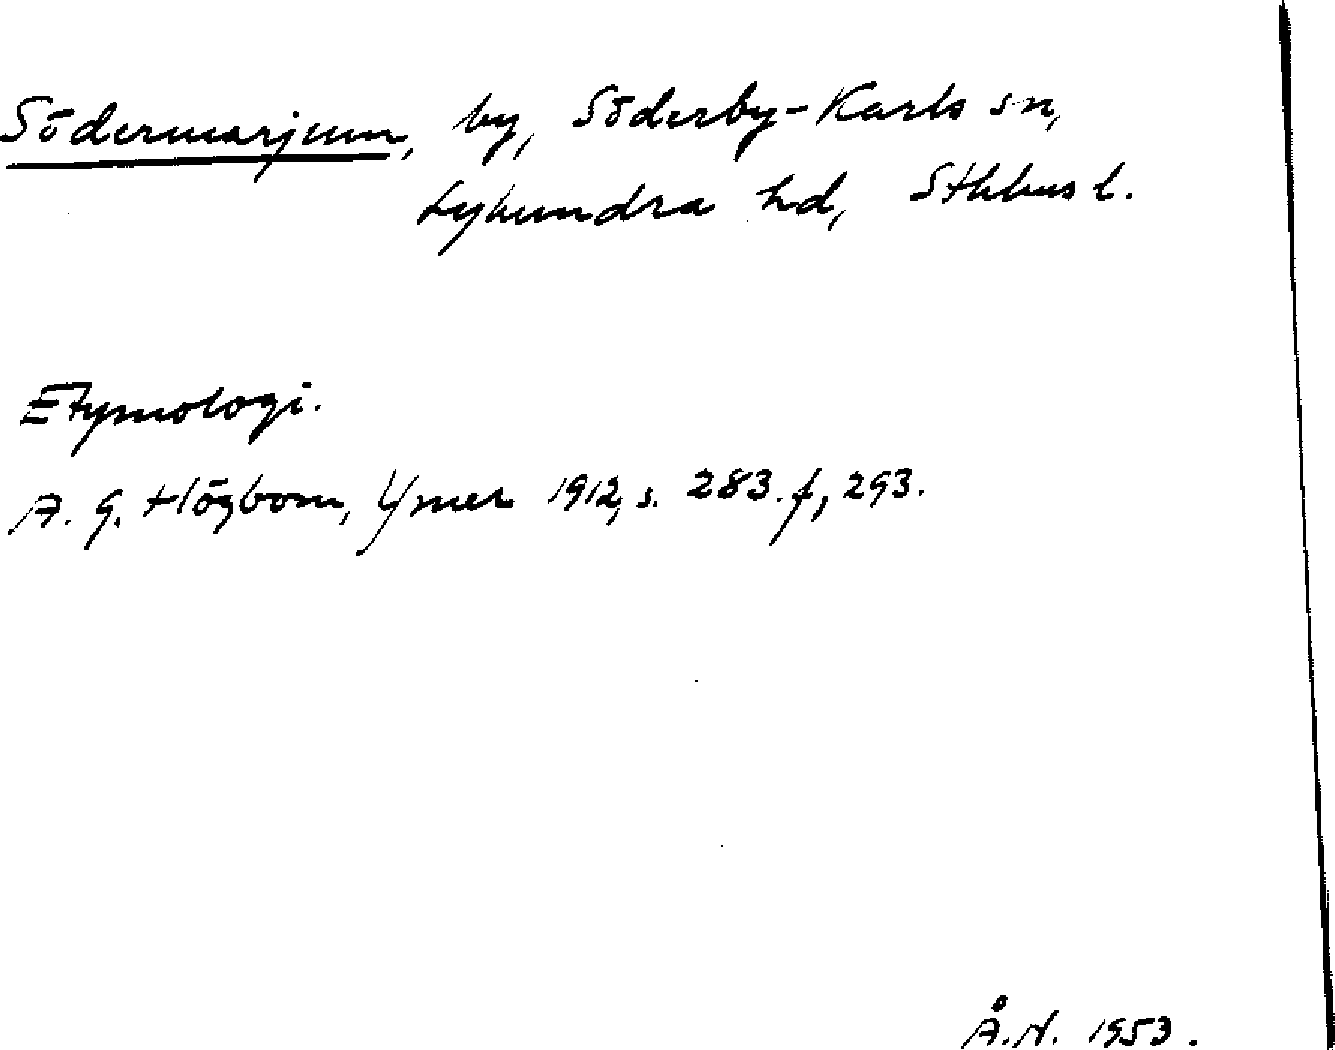 Södermarjum, by, Söderby-Karls sn,
Lyhundra hd, Sthlms l.
Etymologi.
A. G. Högbom, Ymer 1912, s. 283. f, 293.
Å.N. 1953.